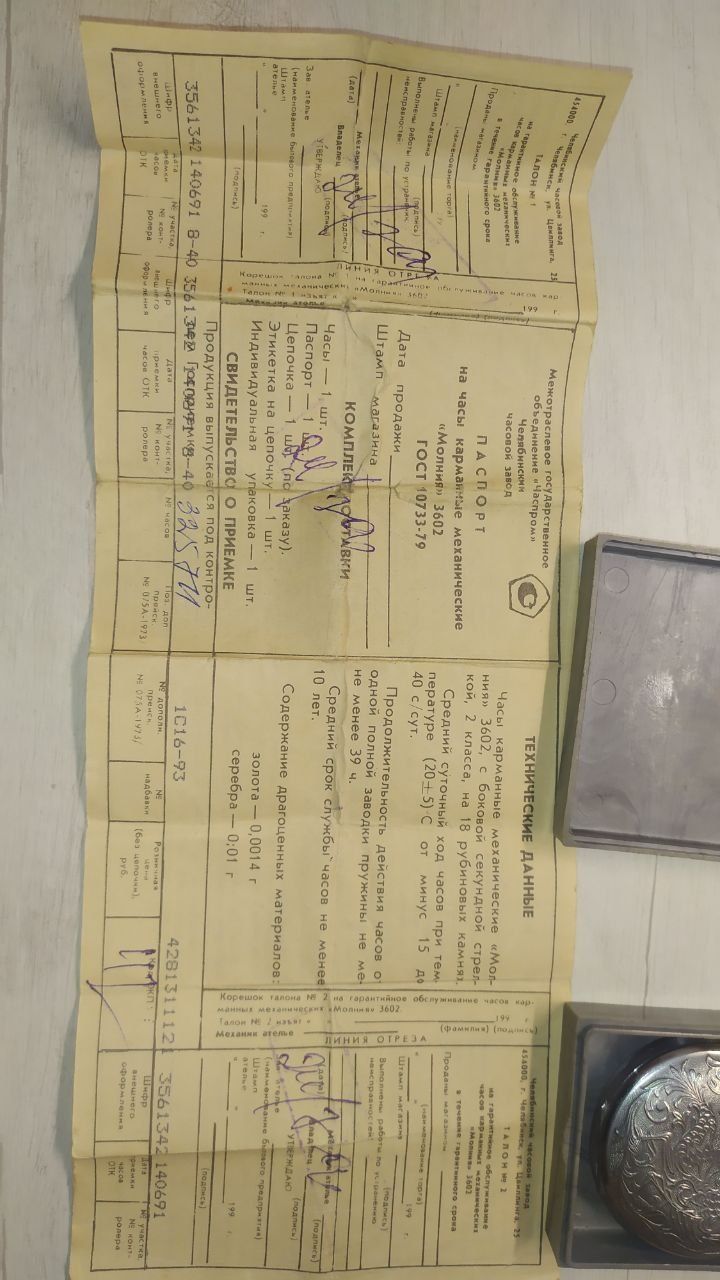 Челябинский часовой завод
454000, г. Челябинск, ул. Цвиллинга, 25
ТАЛОН № 1
на гарантийное обслуживание
часов карманных механических
«Молния» 3602
в течение гарантийного срока
Проданы магазином
(наименование торга)
Штамп магазина
Выполнены работы по устранению
неисправностей:
(дата) Механик ателье (подпись)
Владелец (подпись)
УТВЕРЖДАЮ
Зав. ателье
(наименование бытового предприятия)
Штамп
ателье
« » 199 г.
(подпись)
Шифр внешнего оформления
Дата приемки часов ОТК
№ участка, № контролера
3561342 140691 8-40
ЛИНИЯ ОТРЕЗА
Корешок талона № 1 на гарантийное обслуживание часов карманных механических «Молния» 3602
Талон № 1 изъят « » 199 г.
Механик ателье
(фамилия) (подпись)
Межотраслевое государственное
объединение «Часпром»
Челябинский
часовой завод
ПАСПОРТ
на часы карманные механические
«Молния» 3602
ГОСТ 10733-79
Дата продажи
Штамп магазина
КОМПЛЕКТ ПОСТАВКИ
Часы — 1 шт.
Паспорт — 1 шт.
Цепочка — 1 шт. (по заказу).
Этикетка на цепочку — 1 шт.
Индивидуальная упаковка — 1 шт.
СВИДЕТЕЛЬСТВО О ПРИЕМКЕ
Продукция выпускается под контро-
лем Госприемки
3561342 140691 8-40
Шифр внешнего оформления
Дата приемки часов ОТК
№ участка, № контролера
№ часов
Поз. доп. прейск. № 075А-1973
№ дополн. прейск. № 075А-1973/
1С16-93
№ надбавки
Розничная цена (без цепочки), руб.
4281311121
ТЕХНИЧЕСКИЕ ДАННЫЕ
Часы карманные механические «Мол-
ния» 3602, с боковой секундной стрел-
кой, 2 класса, на 18 рубиновых камнях.
Средний суточный ход часов при тем-
пературе (20±5)°С от минус 15 до
40 с/сут.
Продолжительность действия часов от
одной полной заводки пружины не ме-
не менее 39 ч.
Средний срок службы часов не менее
10 лет.
Содержание драгоценных материалов:
золота — 0,0014 г
серебра — 0,01 г
Корешок талона № 2 на гарантийное обслуживание часов кар-
манных механических «Молния» 3602.
Талон № 2 изъят « 199 г.
Механик ателье
(фамилия) (подпись)
ЛИНИЯ ОТРЕЗА
Челябинский часовой завод
454000, г. Челябинск, ул. Цвиллинга, 25
ТАЛОН № 2
на гарантийное обслуживание
часов карманных механических
«Молния» 3602
в течение гарантийного срока
Проданы магазином
(наименование торга)
« 199 г.
Штамп магазина
Выполнены работы по устранению
неисправностей:
(дата) Механик ателье (подпись)
Владелец (подпись)
УТВЕРЖДАЮ
Зав. ателье
(наименование бытового предприятия)
Штамп
ателье
« » 199 г.
(подпись)
Шифр внешнего оформления
Дата приемки часов ОТК
№ участка, № контролера
3561342 140691